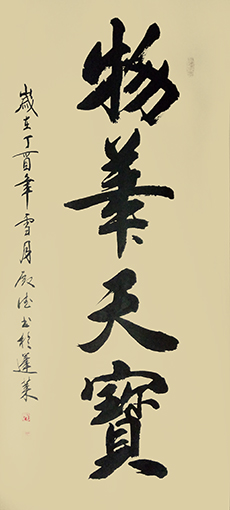 物華天寶
歲在丁酉年雪月殿法書於蓬萊